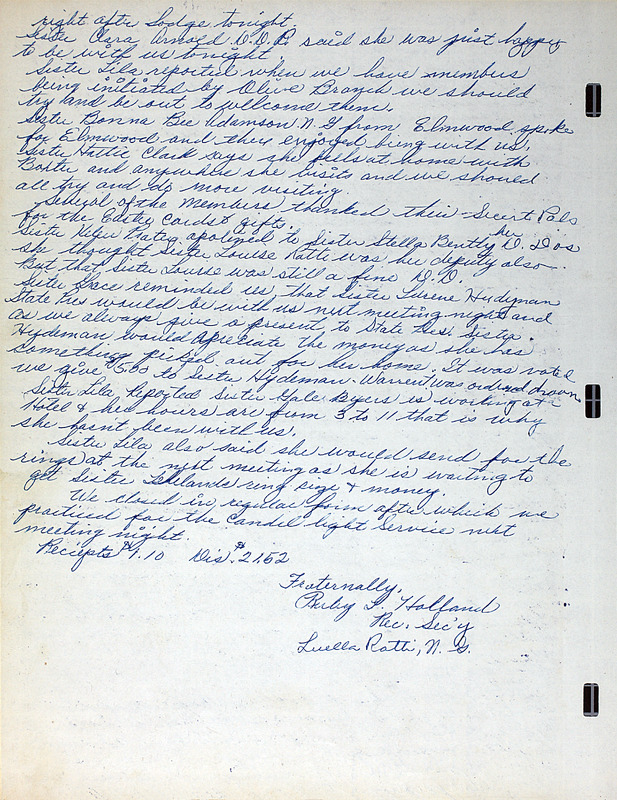 right after Lodge tonight.
Sister Clara Arnold D.D.P. said she was just happy
to be with us tonight
Sister Lila reported when we have members
being initiated by Olive Branch we should
try and be out to welcome them.
Sister Donna Bee Adamson N.G from Elmwood spoke
for Elmwood and they enjoyed being with us.
Sister Hattie Clark says she feels at home with
and anywhere she visits and we should
all try and do more visiting.
Several of the members thanked their Secert Pals
for the Easter cards & gifts.
Sister apoligied to Sister Stella Bently her D. D as
she thought Sister Louise Ratti was her deputy also.
But that Sister Louise was still a fine D.D.
Sister reminded us that Sister Lurene Hydeman
State Pres would be with us next meeting night and
as we always give a present to State Pres. Sister
Hydeman would appreciate the money as she has
something picked out for her home. It was voted
we give $5.00 to Sister Hydeman. Warrent was ordered drawn
Sister Lila reported Sister Gale Byers is working at a
Hotel & her hours are from 3 to 11 that is why
she hasn't been with us.
Sister Lila also said she would send for the
rings at the next meeting as she is waiting to
get Sister ring size & money.
We closed in regular form after which we
practiced for the Candel light Service next
meeting night.
Reciepts $1.10 Dis. $21.52
Fraternally,
Ruby L. Holland
Rec. Sec'y
Luella Ratti, N. G.